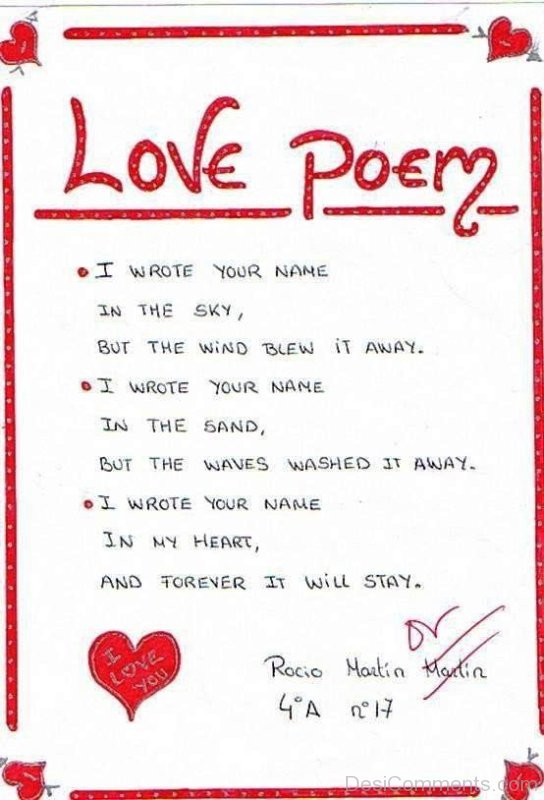 LOVE POEM
I WROTE YOUR NAME
IN THE SKY,
BUT THE WIND BLEW IT AWAY.
I WROTE YOUR NAME
IN THE SAND,
BUT THE WAVES WASHED IT AWAY.
I WROTE YOUR NAME
IN MY HEART,
AND FOREVER IT WILL STAY.
I LOVE YOU
Rocio Martin Martin
4°A nº17
DesiComments.com